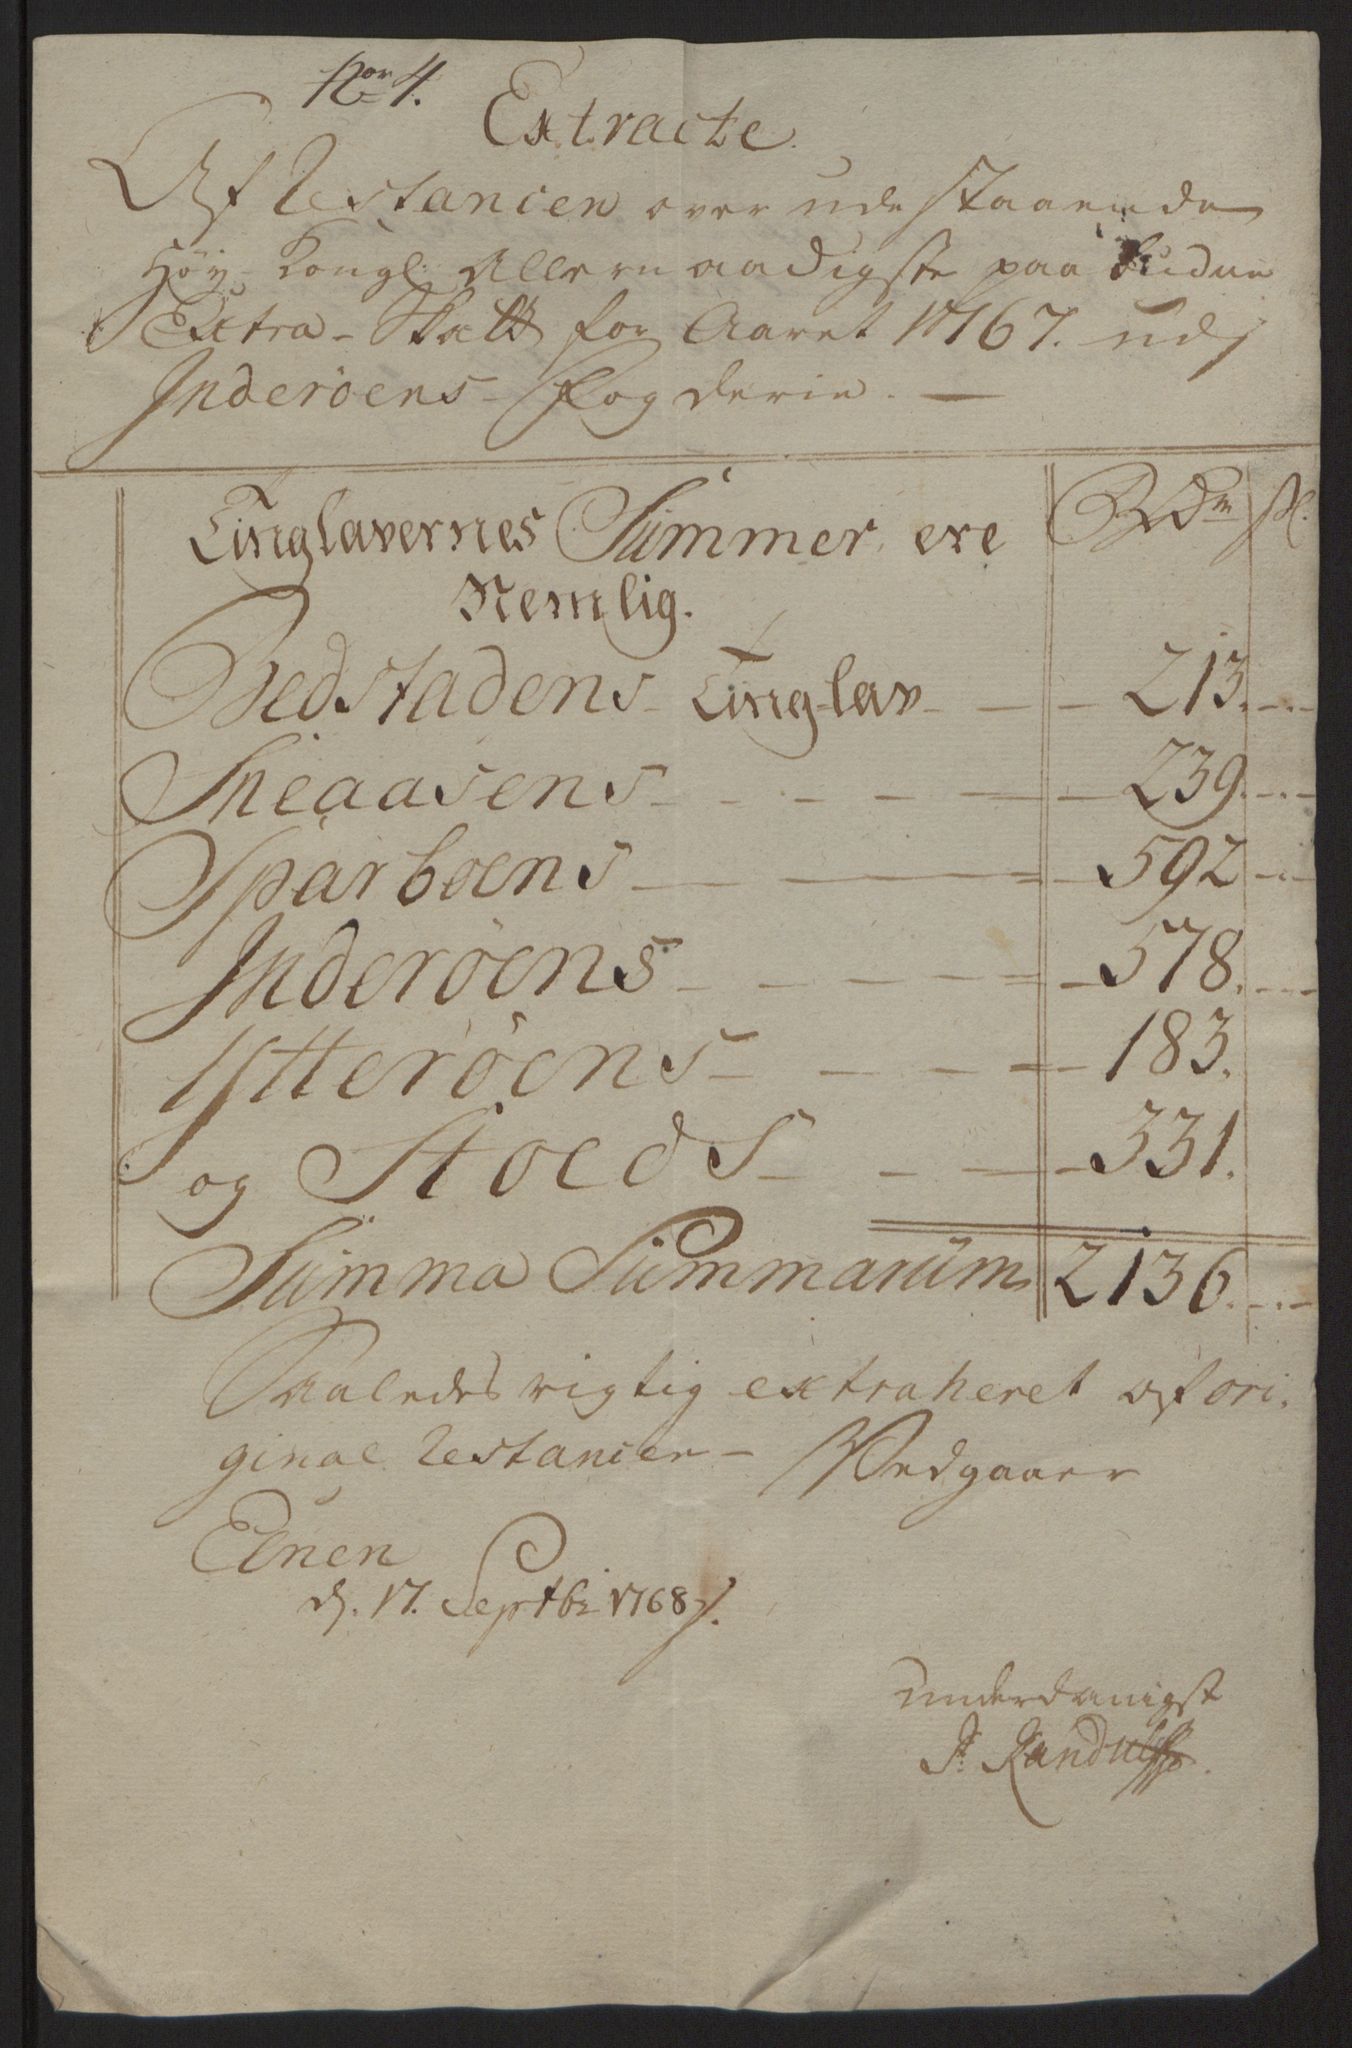 No 4.
Extracte
Af Restancen over udestaaende
Höy-Kongl: Allernaadigste paabudne
Extra-Skatt for Aaret 1767. udj
Inderöens Fogderie. —
Tinglavernes Summer ere
Nemlig.
Rdr s.
Bedstadens Tinglav 213.
Sneaasens 239.
Sparboens 592
Inderöens 578.
Ytteröens 183.
og Stoeds 331.
Summa Summarum 2136.
Saaledes rigtig extraheret af ori-
ginal Restancen - Vedgaaer
Elnen
d. 17. Septbr 1768.
underdanigst
J: Randulff